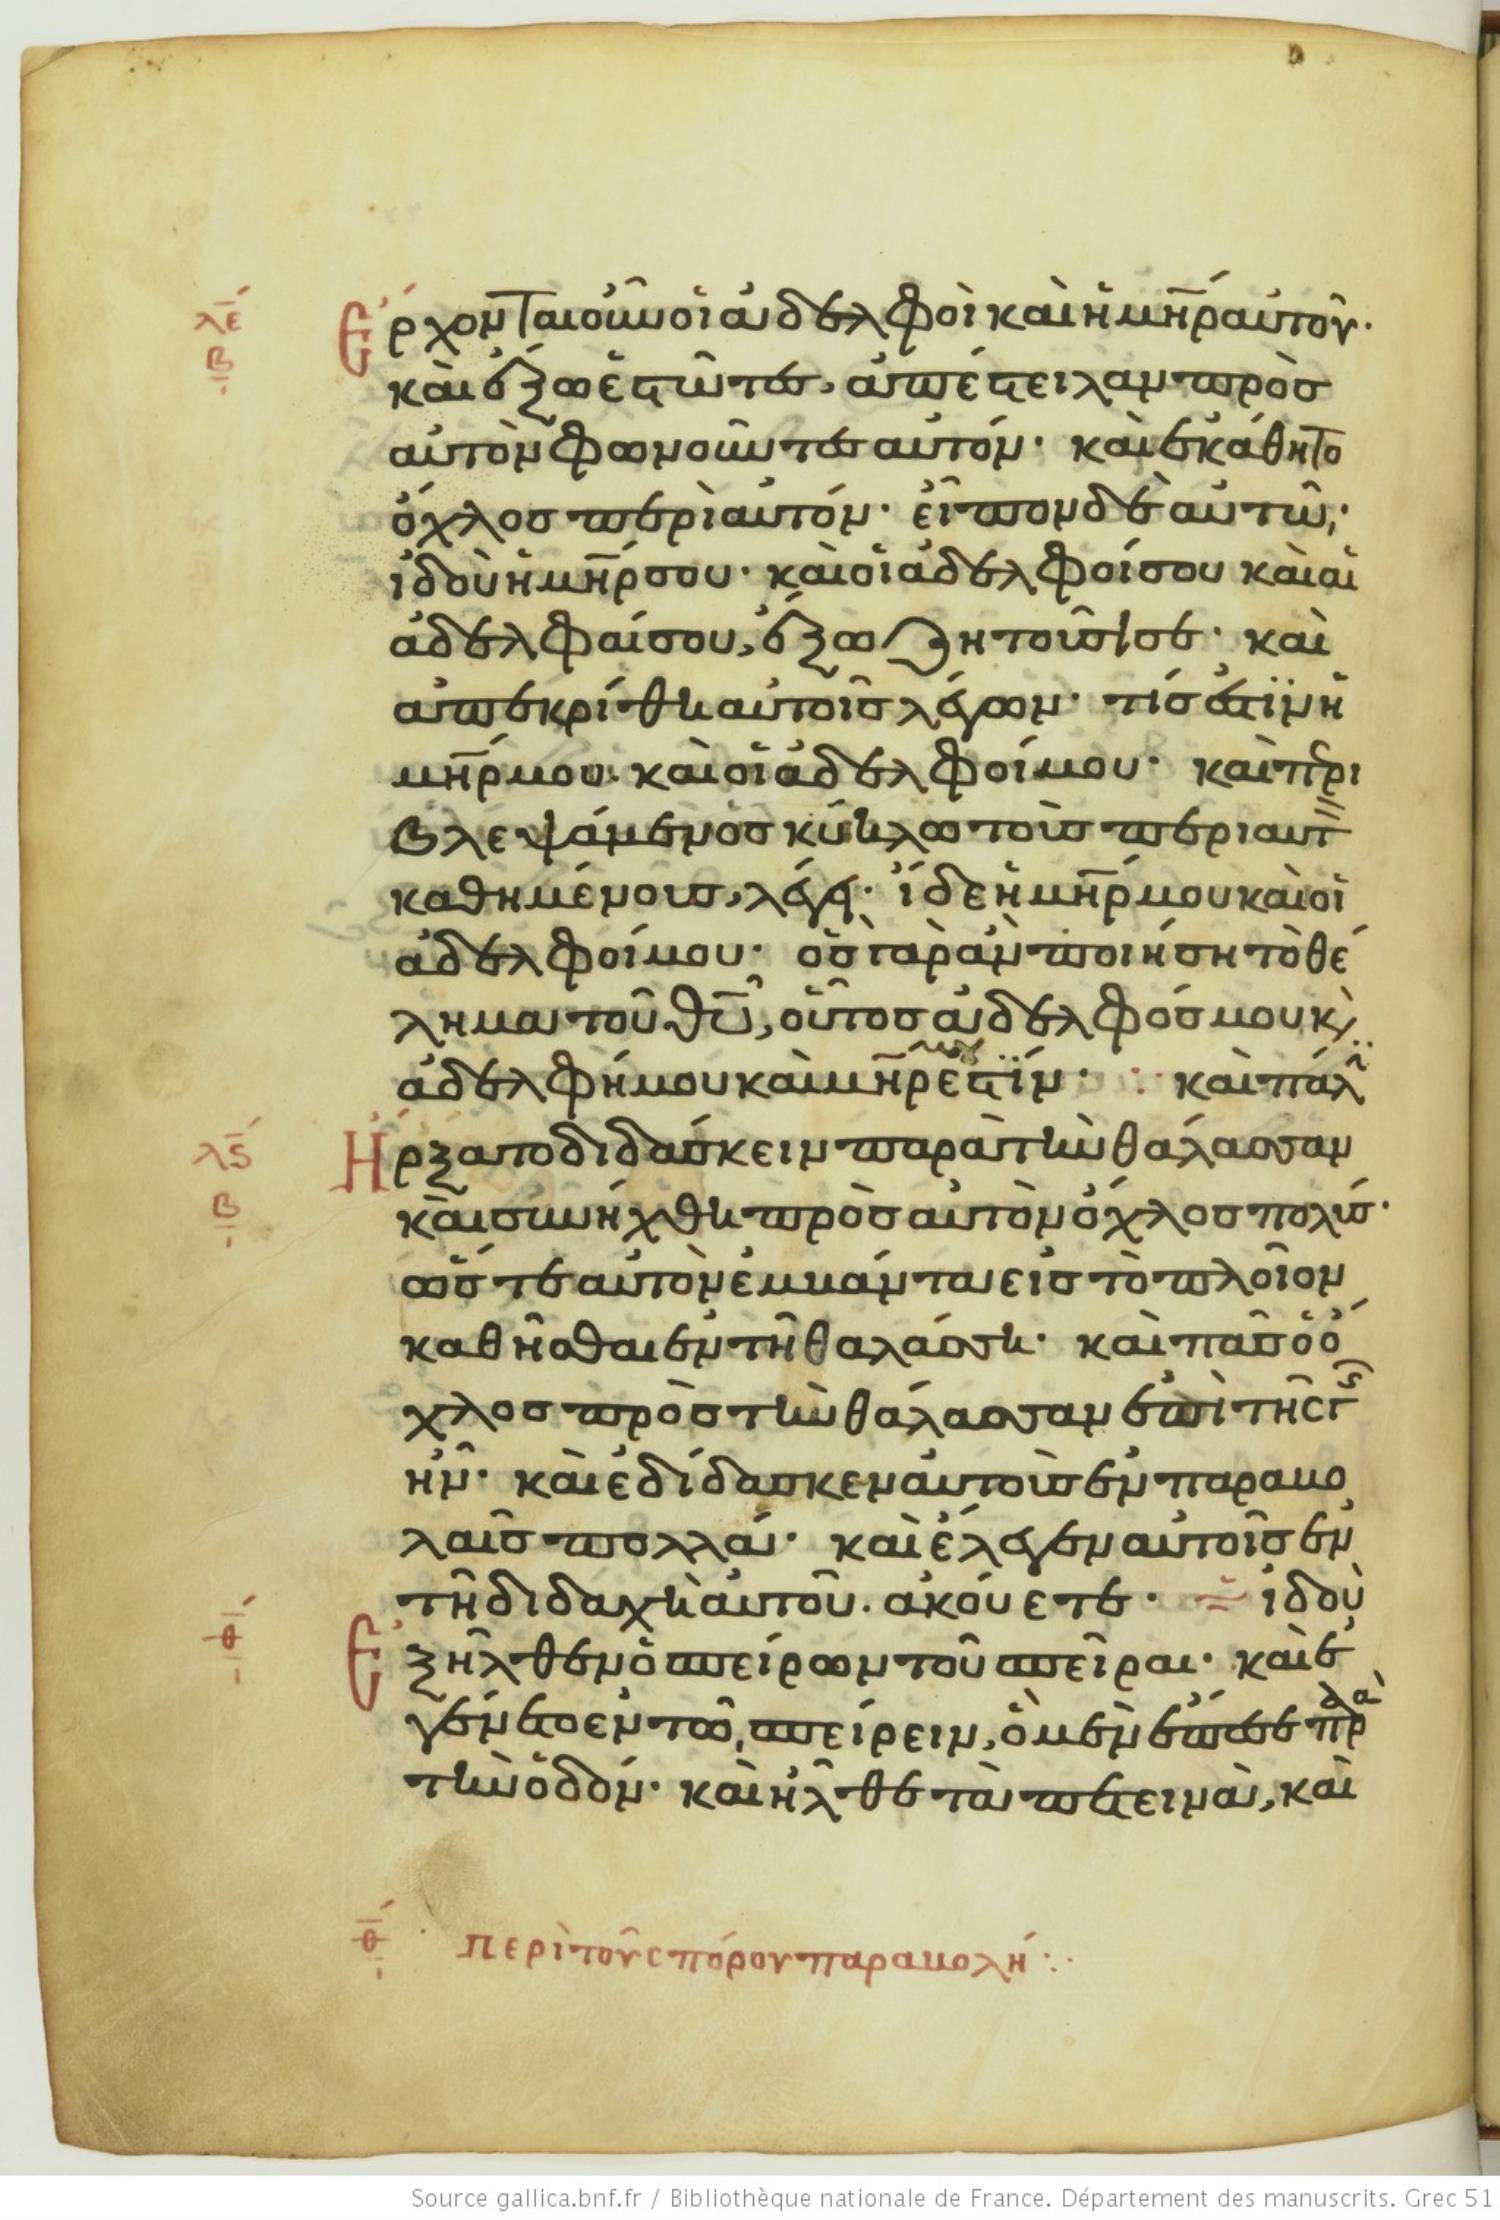 λε
β
Ἔρχονται οὖν οἱ ἀδελφοὶ καὶ ἡ μηρ αὐτοῦ·
καὶ ἔξω ἑστῶτες, ἀπέστειλαν πρὸς
αὐτὸν φωνοῦντες αὐτόν· καὶ ἐκάθητο
ὄχλος περὶ αὐτόν· εἶπον δὲ αὐτῶ,·
ἰδοὺ ἡ μηρ σου· καὶ οἱ ἀδελφοί σου καὶ αἱ
ἀδελφαί σου, ἔξω ζητοῦσί σε· καὶ
ἀπεκρίθη αὐτοῖς λέγων· τίς ἐστϊν ἡ
μηρ μου· καὶ οἱ ἀδελφοί μου· καὶ περι
βλεψάμενος κύκλω τοὺς περι αυτ
καθημένους, λέγει· ἴδε ἡ μηρ μου καὶ οἱ
ἀδελφοί μου· ὃς γὰρ ἂν ποιήση τὸ θέ
λημα τοῦ θυ, οὗτος ἀδελφός μου κ
ἀδελφή μου καὶ μηρ μου ἐστϊν· καὶ πάλι
λς
β
Ἤρξατο διδάσκειν παρὰ τὴν θάλασσαν
καὶ συνήχθη πρὸς αὐτὸν ὄχλος πολύς·
ὥστε αὐτὸν ἐμβάντα εἰς τὸ πλοῖον
καθῆσθαι ἐν τῆ θαλάσση· καὶ πᾶς ὁ ὄ
χλος πρὸς τὴν θάλασσαν ἐπὶ τῆς γῆς
ἦν· καὶ ἐδίδασκεν αὐτοὺς ἐν παραβο
λαῖς πολλά· καὶ ἔλεγεν αὐτοῖς ἐν
τῆ διδαχῆ αὐτοῦ· ἀκούετε· ἰδοὺ
θ
Ἐξῆλθεν ὁ σπείρων τοῦ σπεῖραι· καὶ ἐ
γένετο ἐν τῶ σπείρειν, ὃ μὲν ἔπεσε παρὰ
τὴν ὁδόν· καὶ ἦλθε τὰ πετεινὰ, καὶ
θ περὶ τοῦ σπόρου παραβολή
Source gallica.bnf.fr / Bibliothèque nationale de France. Département des manuscrits. Grec 51